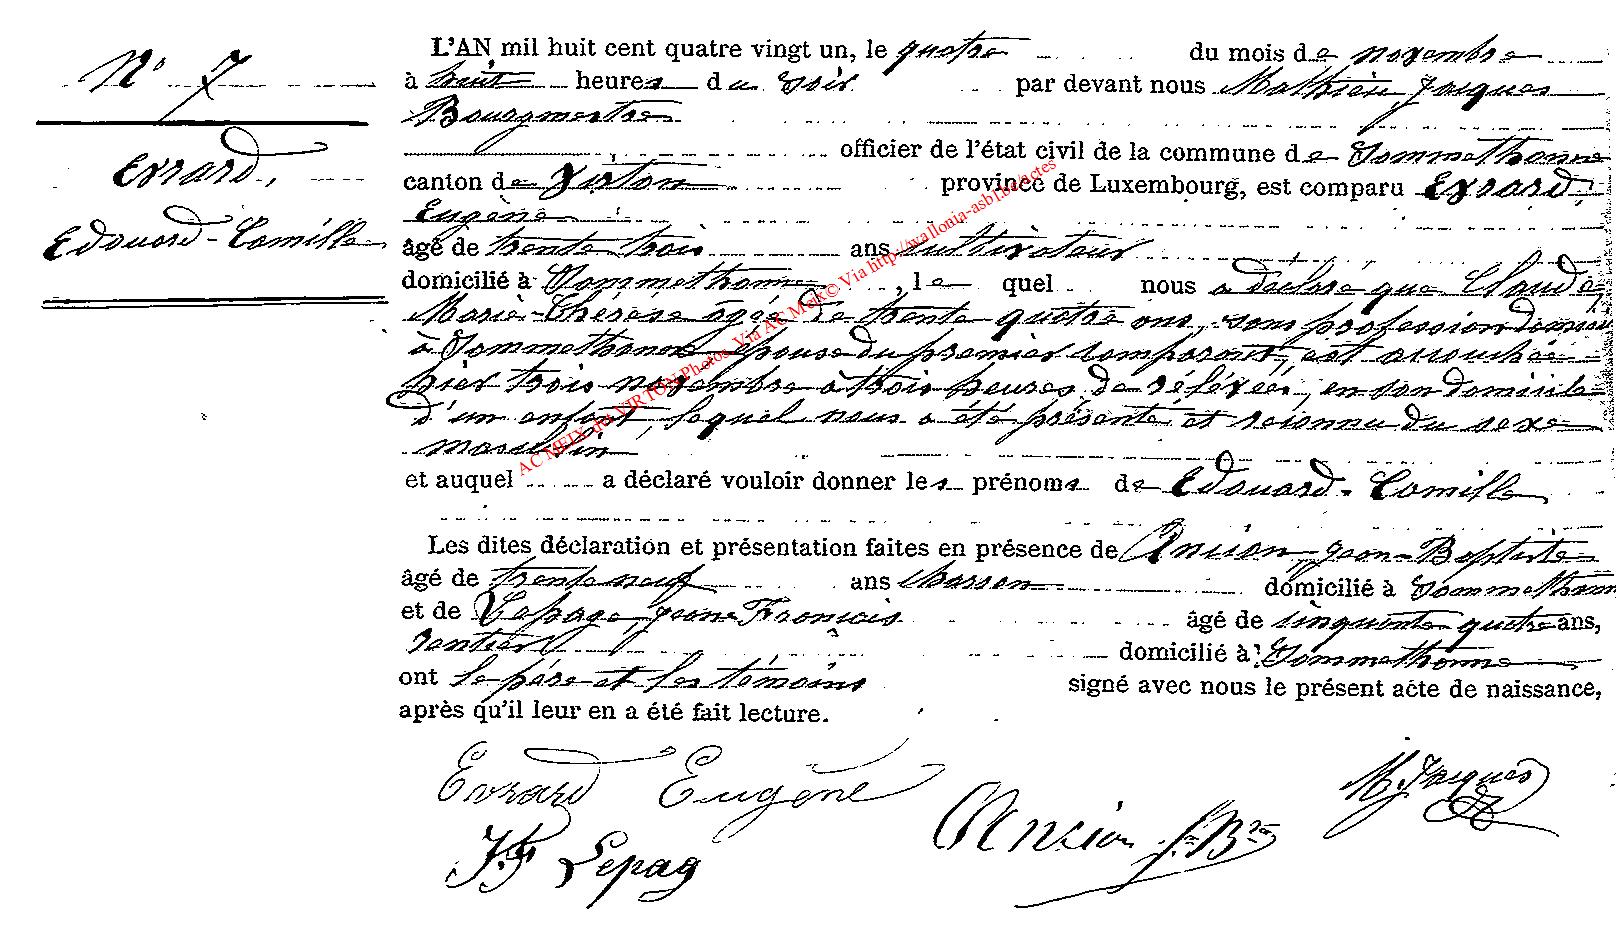 N° 7
Evrard,
Edouard-Camille
L'AN mil huit cent quatre vingt un, le quatre du mois de novembre
à huit heures du soir par devant nous Mathieu Jacques
Bourgmestre
officier de l'état civil de la commune de Sommethonne
canton de Virton province de Luxembourg, est comparu Evrard,
Eugène
âgé de trente trois ans cultivateur
domicilié à Sommethonne, le quel nous a déclaré que Claude,
Marie-Thérèse âgée de trente quatre ans, sans profession
à Sommethonne épouse du premier comparant, est accouchée
hier trois novembre à trois heures de relevée, en son domicile
d'un enfant, lequel nous a été présenté et reconnu du sexe
masculin
et auquel a déclaré vouloir donner les prénoms de Edouard-Camille
Les dites déclaration et présentation faites en présence de Ancion, Jean-Baptiste
âgé de trente neuf ans charron domicilié à Sommethonne
et de Lepage, Jean François âgé de cinquante quatre ans,
rentier domicilié à Sommethonne
ont le père et les témoins signé avec nous le présent acte de naissance,
après qu'il leur en a été fait lecture.
Evrard Eugène
M. Jacques
Ancion J. Bte
J. F. Lepag
AC MEIX dvt VIRTON Photos Via AC Meix© Via http://wallonia-asbl.be/actes